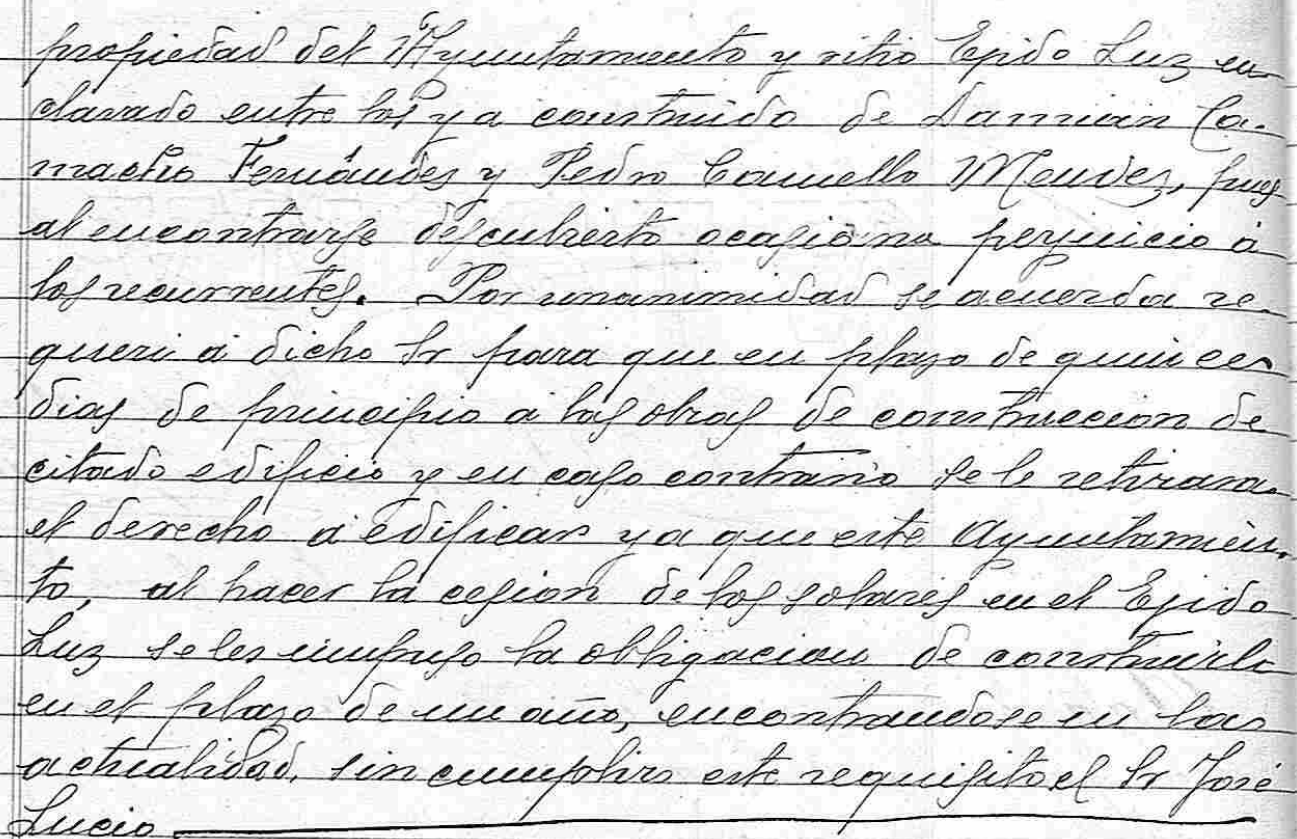 propiedad del Ayuntamiento y sitio Egido Luz en-
clavado entre los ya construido de Damian Ca-
macho Fernández y Pedro Camello Mendez, pues
al encontrarse descubierto ocasiona perjuicio a
los recurrentes. Por unanimidad se acuerda re-
queri a dicho Sr para que en plazo de quince
dias de principio a las obras de construccion de
citado edificio y en caso contrario se le retirara
el derecho a edificar ya que este Ayuntamien-
to, al hacer la cesion de los solares en el Egido
Luz se les impuso la obligacion de construirlo
en el plazo de un año, encontrandose en la
actualidad, sin cumplir este requisito el Sr José
Lucio